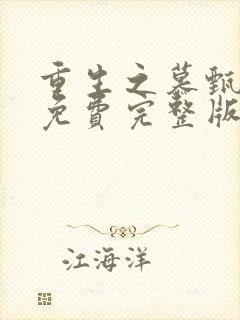 重生之慕甄
免费完整版
江海洋